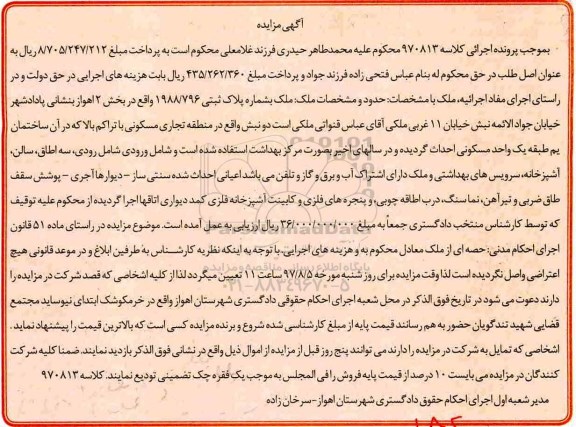 آگهی مزایده
بموجب پرونده اجرائی کلاسه ۹۷۰۸۱۳ محکوم علیه محمدطاهر حیدری فرزند غلامعلی محکوم است به پرداخت مبلغ ۸/۷۰۵/۲۴۷/۲۱۲ ریال به
عنوان اصل طلب در حق محکوم له بنام عباس فتحی زاده فرزند جواد و پرداخت مبلغ ۴۳۵/۲۶۲/۳۶۰ ریال بابت هزینه های اجرایی در حق دولت و در
راستای اجرای مفاد اجرائیه، ملک با مشخصات: حدود و مشخصات ملک: ملک بشماره پلاک ثبتی ۱۹۸۸/۷۹۶ واقع در بخش ۲ اهواز بنشانی پادادشهر
خیابان جوادالائمه نبش خیابان ۱۱ غربی ملکی آقای عباس قنواتی ملکی است دو نبش واقع در منطقه تجاری مسکونی با تراکم بالا که در آن ساختمان
یم طبقه یک واحد مسکونی احداث گردیده و در سالهای اخیر بصورت مرکز بهداشت استفاده شده است و شامل ورودی شامل رودی، سه اطاق، سالن،
آشپزخانه، سرویس های بهداشتی و ملک دارای اشتراک آب و برق و گاز و تلفن می باشد اعیانی احداث شده سنتی ساز - دیوارها آجری - پوشش سقف
طاق ضربی و تیرآهن، نما سنگ، درب اطاقه چوبی، و پنجره های فلزی و کابینت آشپزخانه فلزی کمد دیواری اتاقها اجرا گردیده از محکوم علیه توقیف
که توسط کارشناس منتخب دادگستری جمعاً به مبلغ ۳۶/۰۰۰/۰۰۰/۰۰۰ ریال ارزیابی به عمل آمده است. موضوع مزایده در راستای ماده ۵۱ قانون
اجرای احکام مدنی: حصه ای از ملک معادل محکوم به و هزینه های اجرایی. با توجه به اینکه نظریه کارشناس به طرفین ابلاغ و در موعد قانونی هیچ
اعتراضی واصل نگردیده است لذا وقت مزایده برای روز شنبه مورخه ۹۷/۸/۵ ساعت ۱۱ تعیین میگردد لذا از کلیه اشخاصی که قصد شرکت در مزایده را
دارند دعوت می شود در تاریخ فوق الذکر در محل شعبه اجرای احکام حقوقی دادگستری شهرستان اهواز واقع در خرمکوشک ابتدای نیوساید مجتمع
قضایی شهید تندگویان حضور به هم رسانند قیمت پایه از مبلغ کارشناسی شده شروع و برنده مزایده کسی است که بالاترین قیمت را پیشنهاد نماید.
اشخاصی که تمایل به شرکت در مزایده را دارند می توانند پنج روز قبل از مزایده از اموال ذیل واقع در نشانی فوق الذکر بازدید نمایند. ضمنا کلیه شرکت
کنندگان در مزایده می بایست ۱۰ درصد از قیمت پایه فروش را فی المجلس به موجب یک فقره چک تضمینی تودیع نمایند. کلاسه ۹۷۰۸۱۳
مدیر شعبه اول اجرای احکام حقوق دادگستری شهرستان اهواز-سرخان زاده
پایگاه اطلاع رسانی مناقصه و مزایده
۰۲۱-۸۸۳۴۹۶۷۰-۵